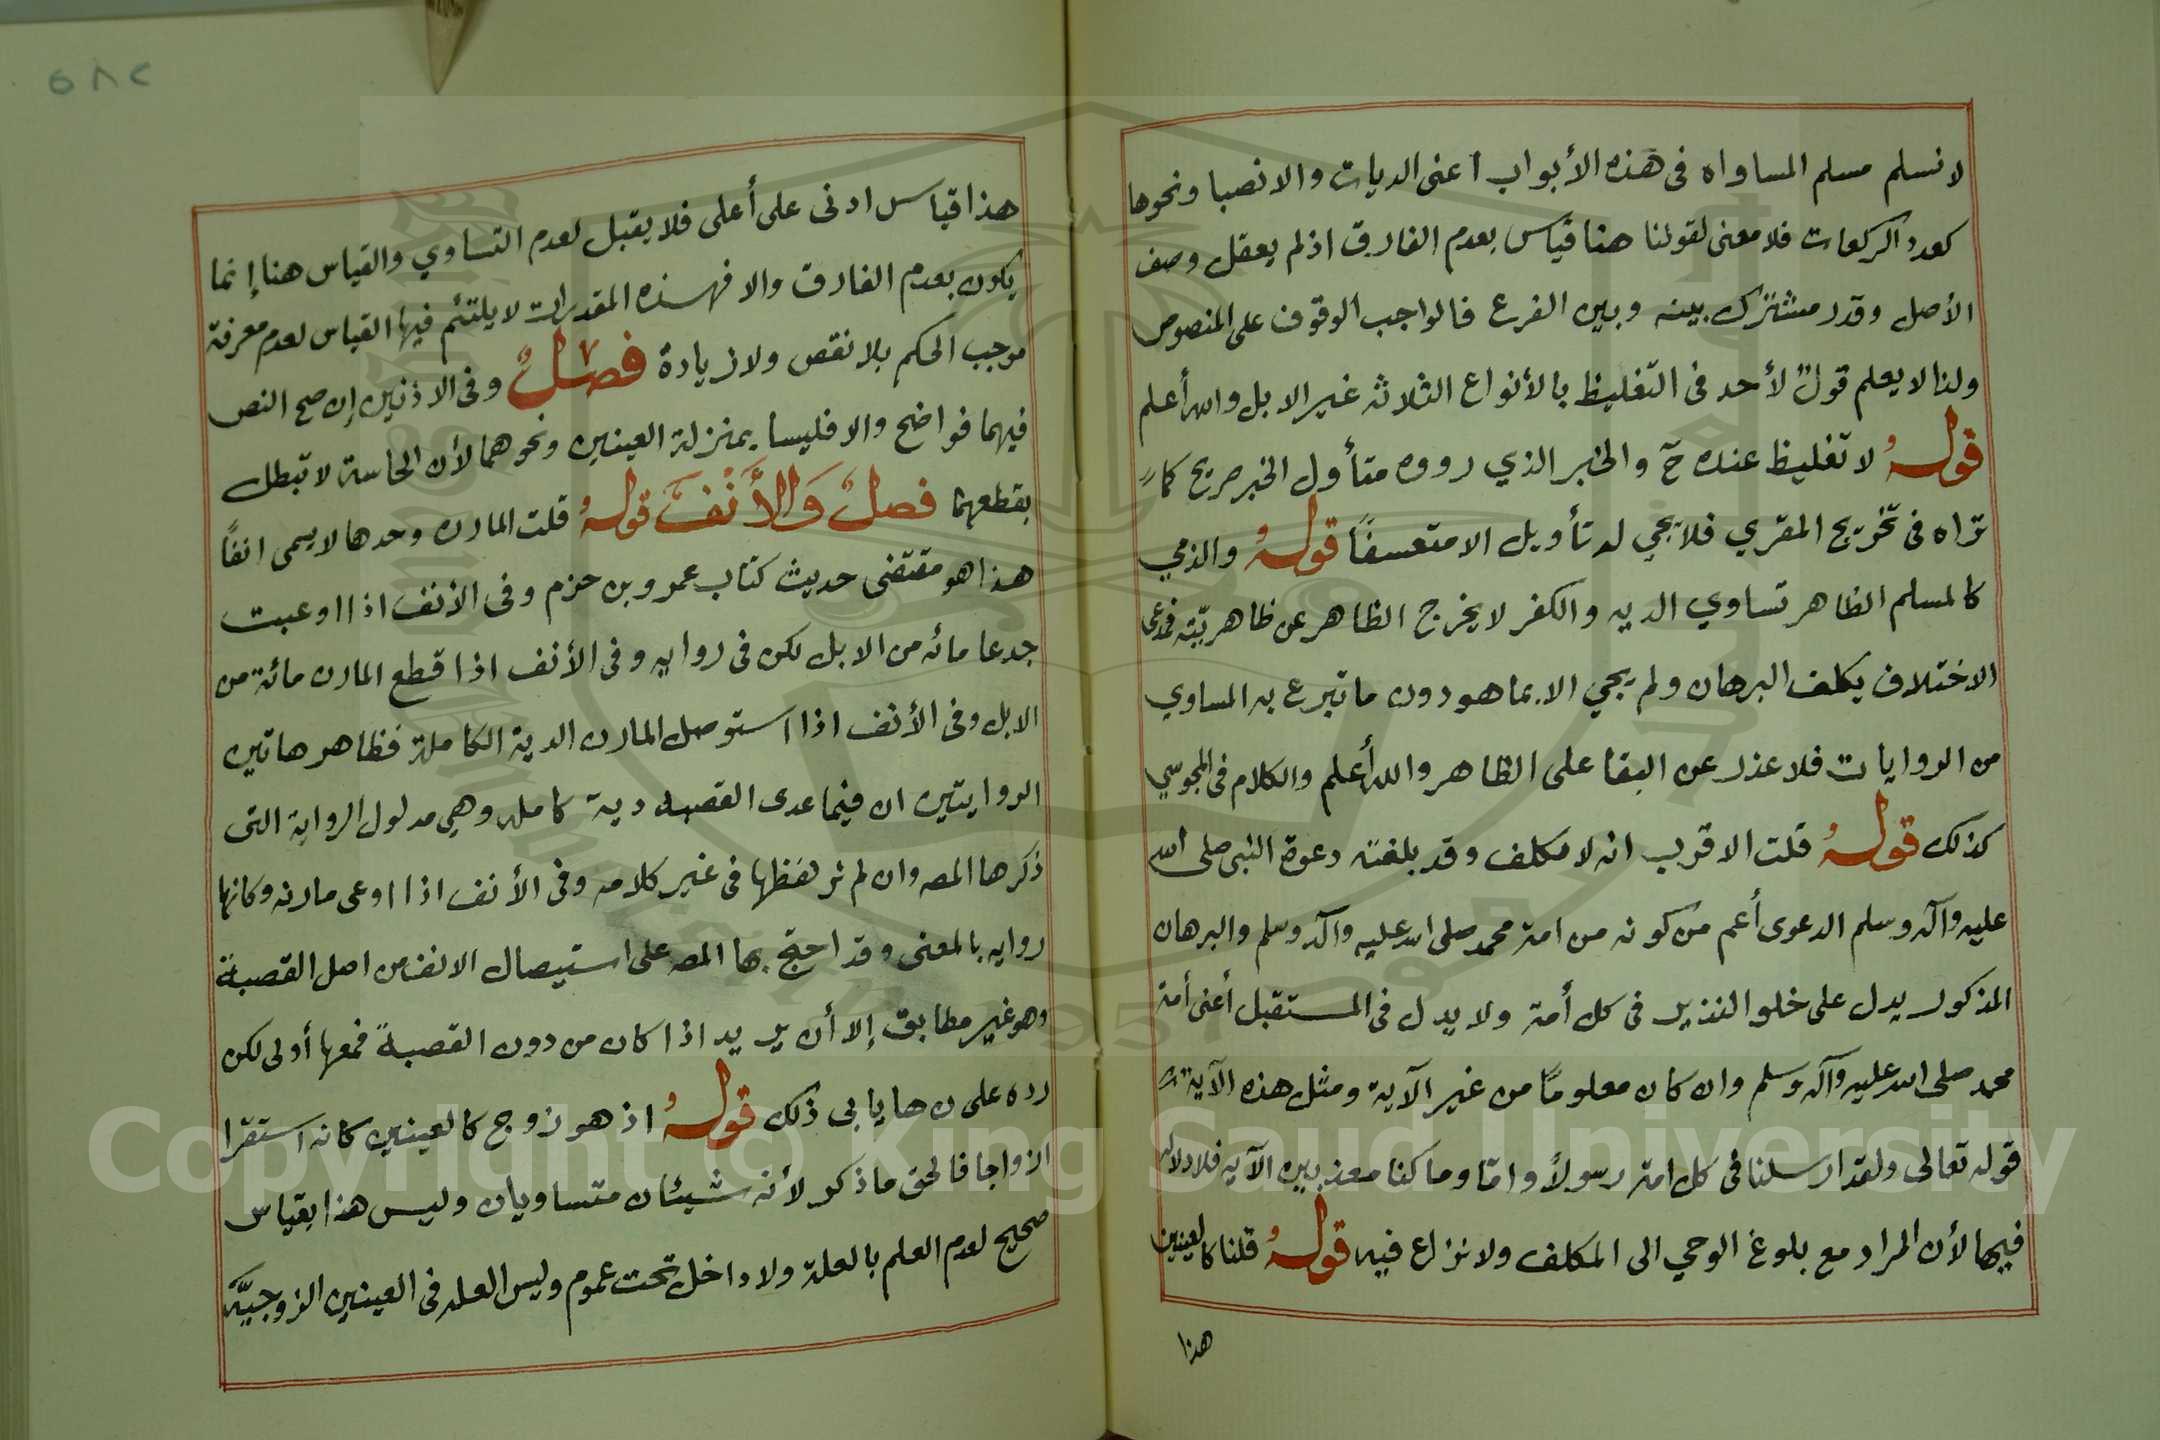 لا نسلم مسلم المساواه فى هذه الأبواب أعنى الديات والانصبا ونحوها
كعدد الركعات فلا معنى لقولنا هنا قياس بعدم الفارق اذ لم يعقل وصف
الأصل وقدر مشترك بينه وبين الفرع فالواجب الوقوف على المنصوص
ولنا لا يعلم قولٌ لأحد فى التغليظ بالأنواع الثلاثه غير الابل والله أعلم
قولهُ لا تغليظ عنده ح والخبر الذي رووه متأول الخبر صريح كما
تراه فى تخريج المقري فلا يجي له تأويل الا متعسفًا قولهُ والذمي
كالمسلم الظاهر تساوي الديه والكفر لا يخرج الظاهر عن ظاهريّته فمدعى
الاختلاف يكلف البرهان ولم يجي الا بما هو دون ما تبرع به المساوي
من الروايات فلا عذر عن البقا على الظاهر والله أعلم والكلام فى المجوسي
كذلك قولهُ قلت الاقرب انه لا مكلف وقد بلغته دعوة النبى صلى الله
عليه وآله وسلم الدعوى أعم من كونه من امة محمد صلى الله عليه وآله وسلم والبرهان
المذكور يدل على خلو النذير فى كل أمة ولا يدل فى المستقبل أعنى أمة
محمد صلى الله عليه وآله وسلم وان كان معلومًا من غير الآية ومثل هذه الآية
قوله تعالى ولقد ارسلنا فى كل امة رسولاً وامّا وما كنا معذبين الآيه فلا دلاله
فيها لأن المراد مع بلوغ الوحي الى المكلف ولا نزاع فيه قولهُ قلنا كالعينين
هذا
٥٨٢
هذا قياس ادنى على أعلى فلا يقبل لعدم التساوي والقياس هنا إنما
يكون بعدم الفارق والا فهذه المقدرات لا يلتئم فيها القياس لعدم معرفة
موجب الحكم بلا نقص ولا زيادة فصلٌ وفى الاذنين إن صح النص
فيهما فواضح والا فليسا بمنزلة العينين ونحوهما لأن الحاسة لا تبطل
بقطعهما فصلٌ وَالأَنْفَ قولهُ قلت المارن وحدها لا يسمى انفًا
هذا هو مقتضى حديث كتاب عمرو بن حزم وفى الأنف اذا اوعبت
جدعا مائه من الابل لكن فى روايه وفى الأنف اذا قطع المارن مائة من
الابل وفى الأنف اذا استوصل المارن الدية الكاملة فظاهر هاتين
الروايتين ان فيما عدى القصبه دية كامله وهي مدلول الرواية التى
ذكرها المصه وان لم نر لفظها فى غير كلامه وفى الأنف اذا اوعى مارنه وكانها
روايه بالمعنى وقد احتج بها المصه على استيصال الانف من اصل القصبة
وهو غير مطابق إلا أن يريد اذا كان من دون القصبة فمعها أولى لكن
رده على ن ها يابى ذلك قولهُ اذ هو زوج كالعينين كانه استقرا
ازواجا فالحق ما ذكر لأنه شيئان متساويان وليس هذا بقياس
صحيح لعدم العلم بالعلة ولا داخل تحت عموم وليس العله فى العينين الزوجيّه
Copyright © King Saud University
1957